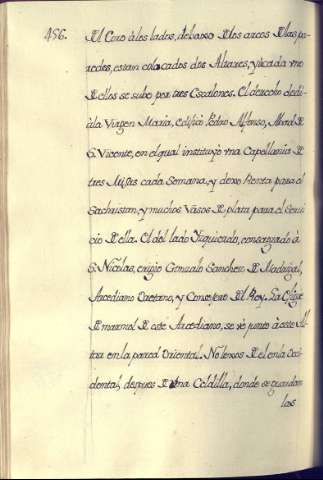 456.
El Coro à los lados, debaxo de los arcos de las pa-
redes, estan colocados dos Altares, y à cada uno
de ellos se sube por tres Escalones. El derecho dedi-
à la Virgen Maria, edificó Pedro Alfonso, Abad de
S. Vicente, en el qual instituyó una Capellania de
tres Misas cada Semana, y dexo Renta para el
Sachristan, y muchos Vasos de plata para el Servi-
cio de ella. El del lado Izquierdo, consagrado à
S. Nicolas, erigio Gonzalo Sanchez de Madrigal,
Arcediano Cuetano, y Consejero del Rey. La Efigie
de marmol de este Arcediano, se vé junto à este Al-
tar en la pared Oriental. No lexos de el en la Occi-
dental, despues de una Celdilla, donde se guardan
las